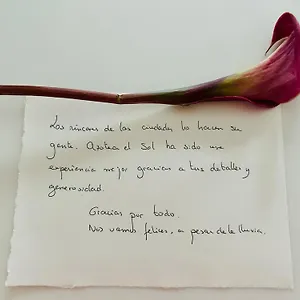 Los rincones de las ciudades lo hacen su
gente. Azotea el Sol ha sido una
experiencia mejor gracias a tus detalles y
generosidad.
Gracias por todo.
Nos vamos felices, a pesar de la lluvia.